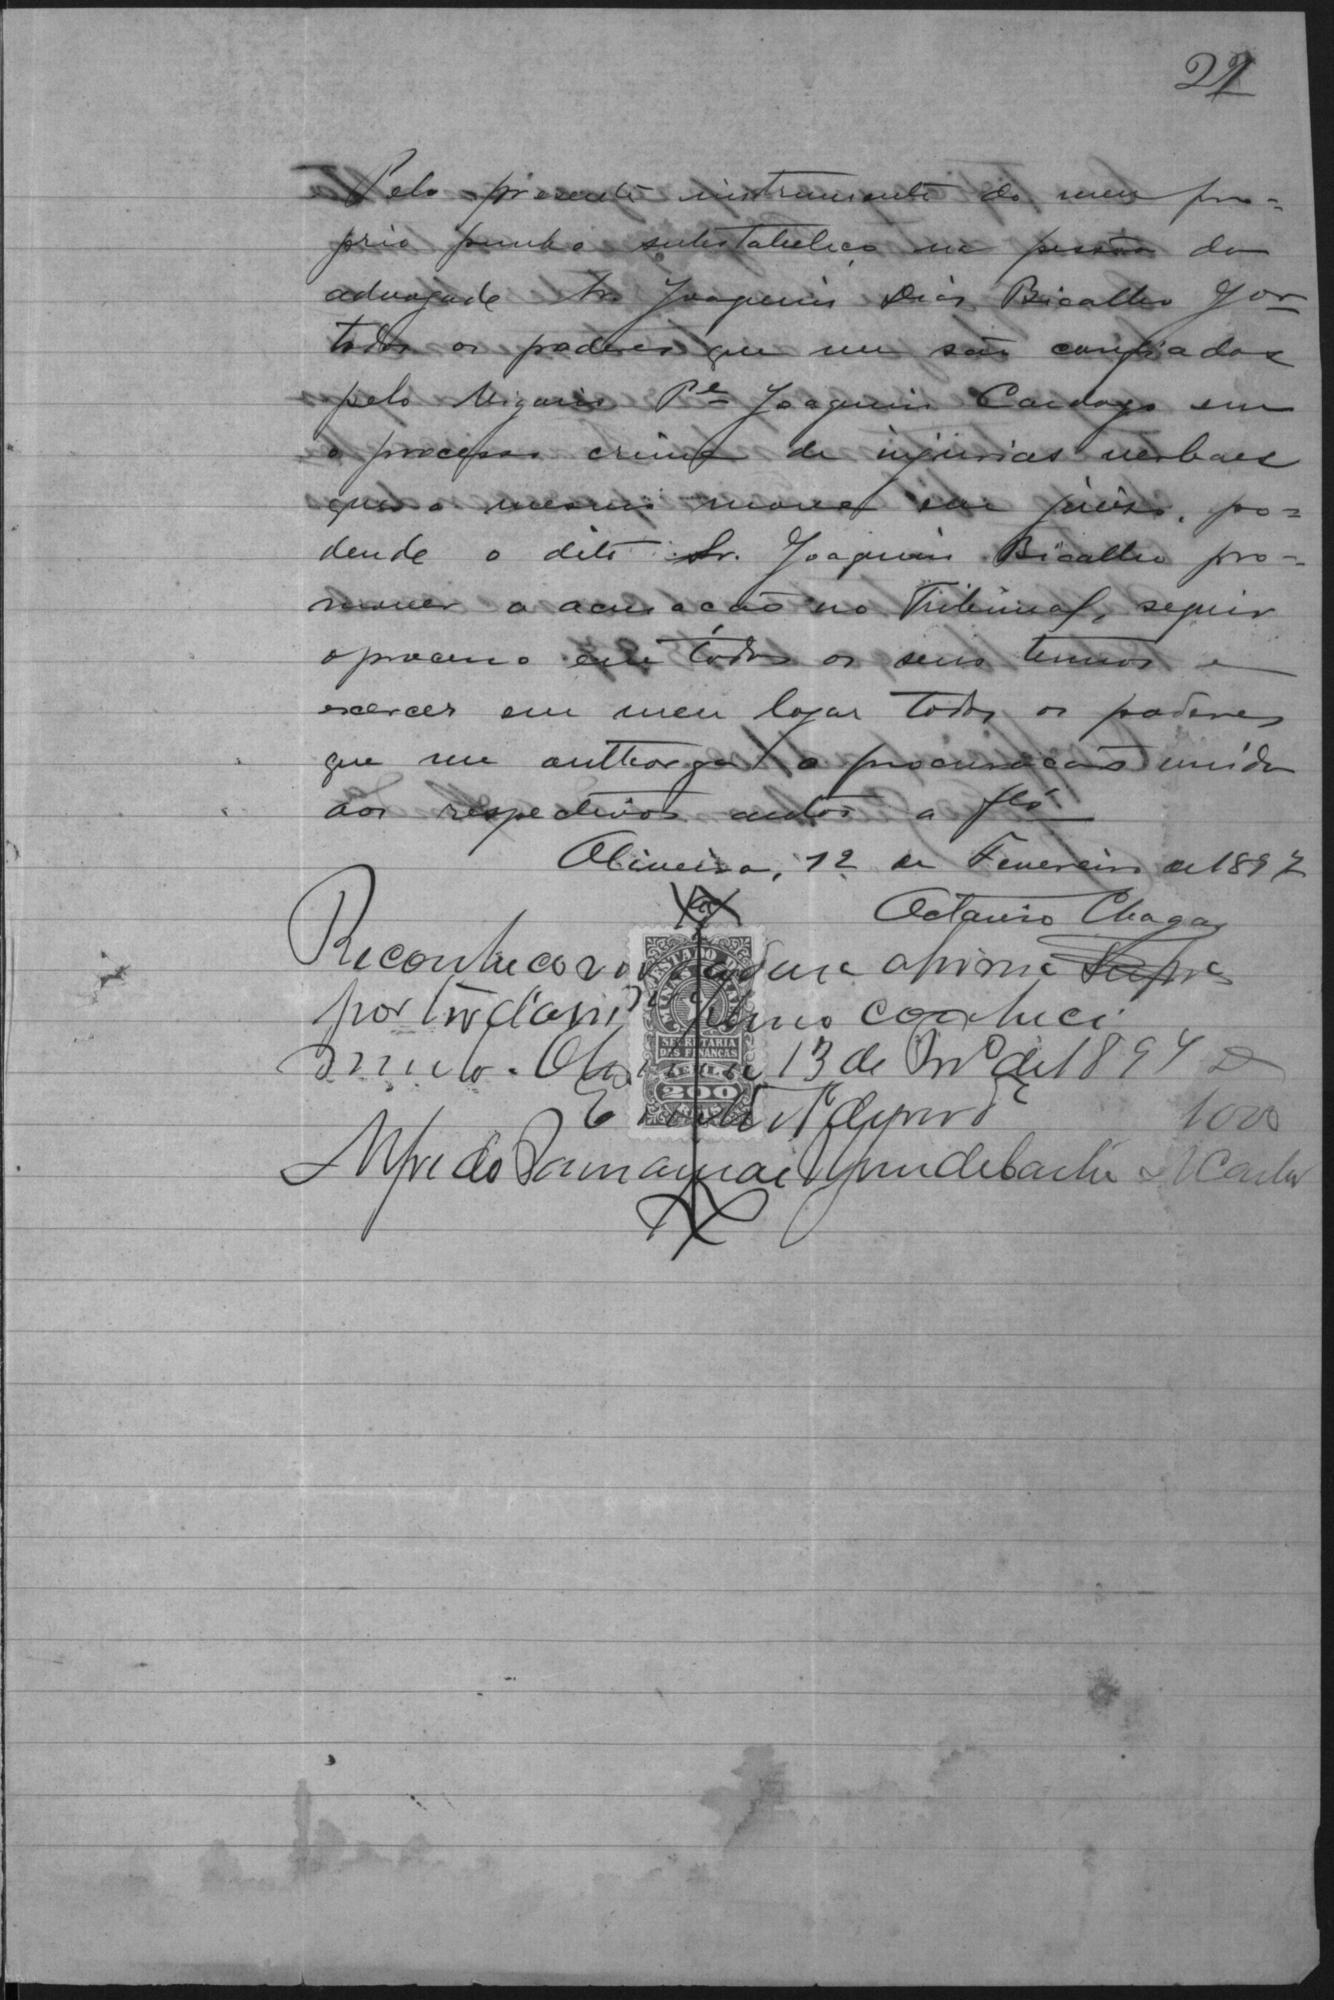 22
Pelo presente instrumento do meu pro=
prio punho substabeleço na pessoa do
advogado Dr. Joaquim Dias Bicalho Jor
todos os poderes que me são confiados
pelo Vigario Pe. Joaquim Cardoso em
o processo crime de injurias verbaes
que o mesmo move em juiso, po=
dendo o dito Dr. Joaquim Bicalho pro-
mover a acusação no Tribunal, seguir
o processo em todos os seus termos e
exercer em meu logar todos os poderes
que me outhorga a procuração unida
aos respectivos autos a fls
Oliveira, 12 de Fevereiro de 1897
Octavio Chagas
Reconheço verdadeira a firma supra
por ter d'ella pleno conheci
mento. 13 de de 1897
1000
Alfredo
ESTADO DE MINAS
SECRETARIA
DAS FINANÇAS
SELLO
200
REIS